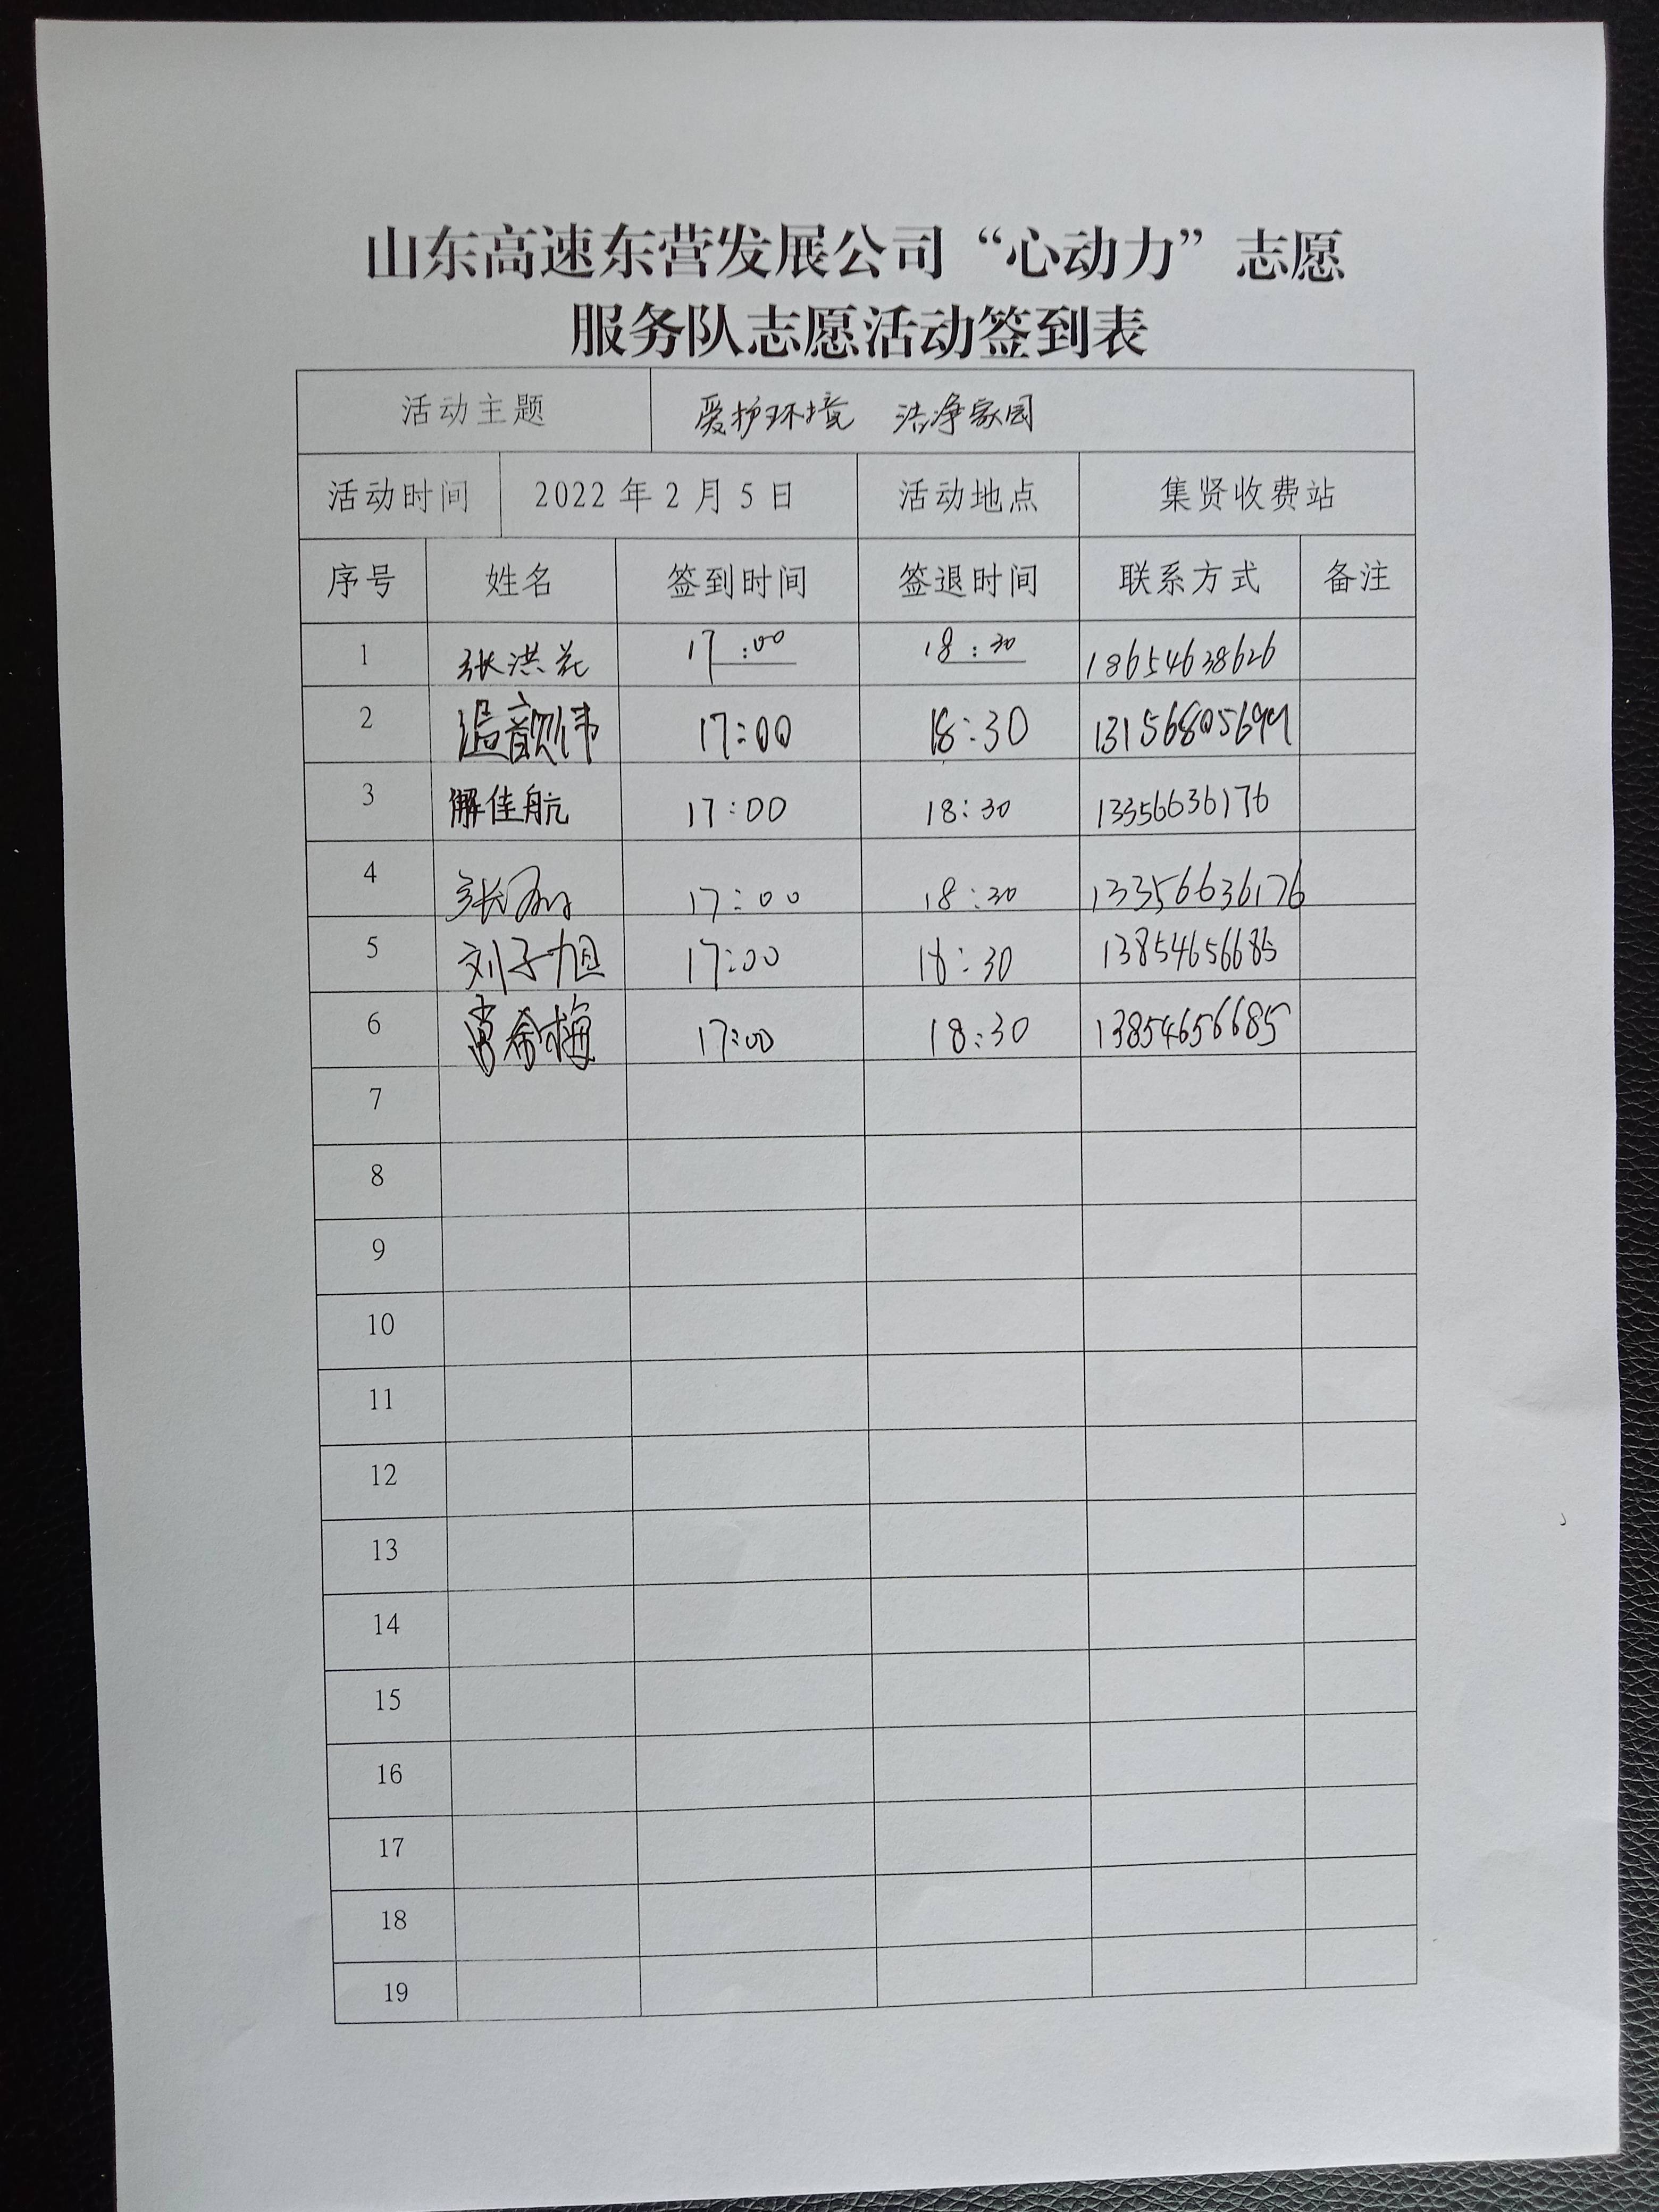 山东高速东营发展公司“心动力”志愿
服务队志愿活动签到表
活动主题 爱护环境 洁净家园
活动时间 2022年2月5日 活动地点 集贤收费站
序号 姓名 签到时间 签退时间 联系方式 备注
1 张洪花 17:00 18:30 18654638626
2 17:00 18:30
3 解佳航 17:00 18:30 13356636176
4 张 17:00 18:30 13356636176
5 刘子旭 17:00 18:30 13854656685
6 希梅 17:00 18:30 13854656685
7
8
9
10
11
12
13
14
15
16
17
18
19